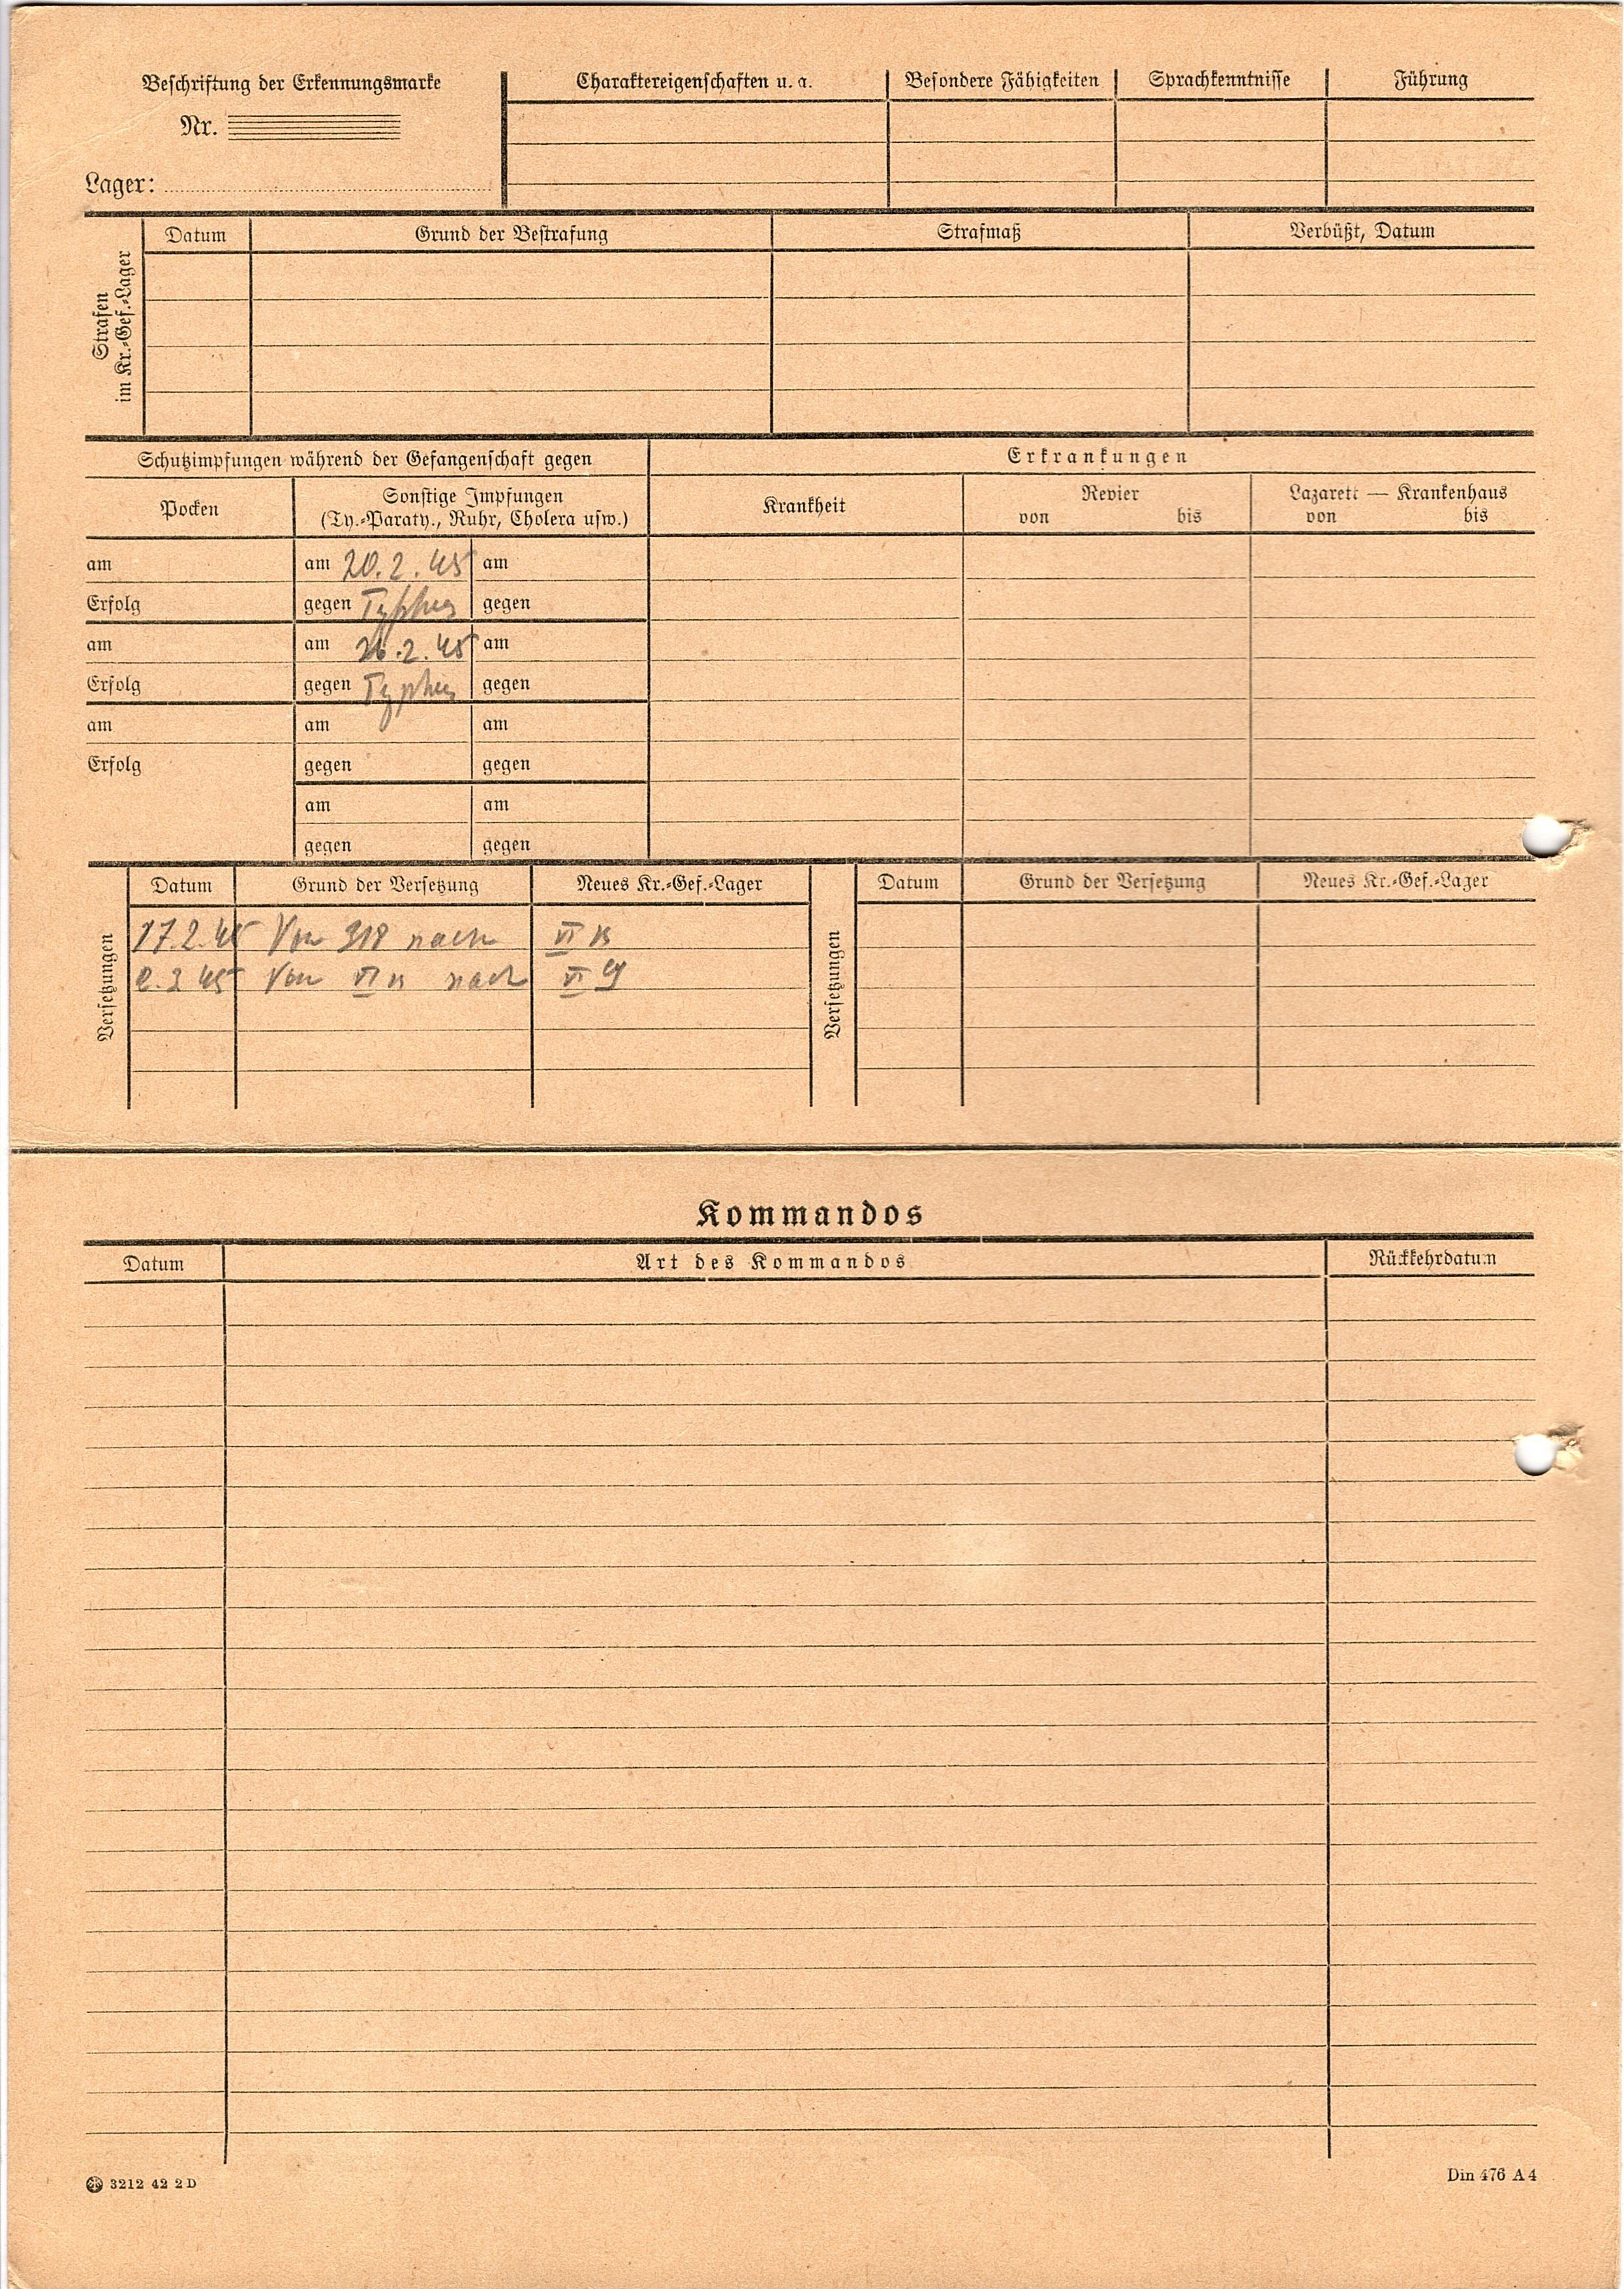 Beschriftung der Erkennungsmarke
Nr.
Lager:
Charaktereigenschaften u. a.
Besondere Fähigkeiten
Sprachkenntnisse
Führung
Strafen
im Kr.-Gef.-Lager
Datum
Grund der Bestrafung
Strafmaß
Verbüßt, Datum
Schutzimpfungen während der Gefangenschaft gegen
Erkrankungen
Pocken
Sonstige Impfungen
(Ty.-Paraty., Ruhr, Cholera usw.)
Krankheit
Revier
von bis
Lazarett — Krankenhaus
von bis
am am 20.2.45 am
Erfolg gegen Typhus gegen
am am 26.2.45 am
Erfolg gegen Typhus gegen
am am am
Erfolg gegen gegen
am am
gegen gegen
Versetzungen
Datum Grund der Versetzung Neues Kr.-Gef.-Lager
17.2.45 Von 318 nach VI
3 45 Von VI nach VI
Versetzungen
Datum Grund der Versetzung Neues Kr.-Gef.-Lager
Kommandos
Datum Art des Kommandos Rückkehrdatum
3212 42 2 D
Din 476 A 4